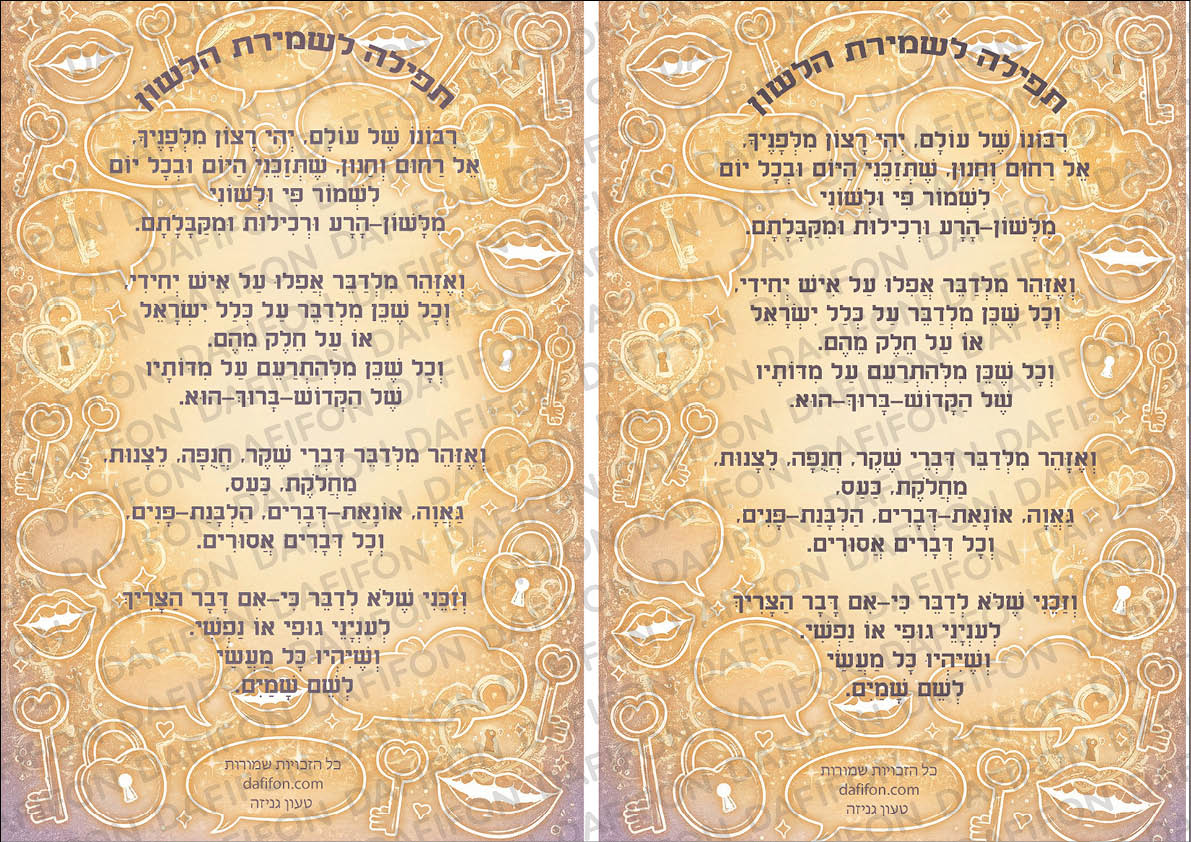 תפילה לשמירת הלשון
רִבּוֹנוֹ שֶׁל עוֹלָם, יְהִי רָצוֹן מִלְּפָנֶיךָ,
אֵל רַחוּם וְחַנּוּן, שֶׁתְּזַכֵּנִי הַיּוֹם וּבְכָל יוֹם
לִשְׁמוֹר פִּי וּלְשׁוֹנִי
מִלָּשׁוֹן-הָרָע וּרְכִילוּת וּמִקַּבָּלָתָם.
וְאֶזָּהֵר מִלְּדַבֵּר אֲפִלּוּ עַל אִישׁ יְחִידִי,
וְכָל שֶׁכֵּן מִלְּדַבֵּר עַל כְּלַל יִשְׂרָאֵל
אוֹ עַל חֵלֶק מֵהֶם.
וְכָל שֶׁכֵּן מִלְּהִתְרַעֵם עַל מִדּוֹתָיו
שֶׁל הַקָּדוֹשׁ-בָּרוּךְ-הוּא.
וְאֶזָּהֵר מִלְּדַבֵּר דִּבְרֵי שֶׁקֶר, חֲנֻפָּה, לֵצָנוּת,
מַחֲלֹקֶת, כַּעַס,
גַּאֲוָה, אוֹנָאַת-דְּבָרִים, הַלְבָּנַת-פָּנִים,
וְכָל דְּבָרִים אֲסוּרִים.
וְזַכֵּנִי שֶׁלֹּא לְדַבֵּר כִּי-אִם דָּבָר הַצָּרִיךְ
לְעִנְיָנֵי גוּפִי אוֹ נַפְשִׁי.
וְשֶׁיִּהְיוּ כָּל מַעֲשַׂי
לְשֵׁם שָׁמַיִם.
כל הזכויות שמורות
dafifon.com
טעון גניזה
תפילה לשמירת הלשון
רִבּוֹנוֹ שֶׁל עוֹלָם, יְהִי רָצוֹן מִלְּפָנֶיךָ,
אֵל רַחוּם וְחַנּוּן, שֶׁתְּזַכֵּנִי הַיּוֹם וּבְכָל יוֹם
לִשְׁמוֹר פִּי וּלְשׁוֹנִי
מִלָּשׁוֹן-הָרָע וּרְכִילוּת וּמִקַּבָּלָתָם.
וְאֶזָּהֵר מִלְּדַבֵּר אֲפִלּוּ עַל אִישׁ יְחִידִי,
וְכָל שֶׁכֵּן מִלְּדַבֵּר עַל כְּלַל יִשְׂרָאֵל
אוֹ עַל חֵלֶק מֵהֶם.
וְכָל שֶׁכֵּן מִלְּהִתְרַעֵם עַל מִדּוֹתָיו
שֶׁל הַקָּדוֹשׁ-בָּרוּךְ-הוּא.
וְאֶזָּהֵר מִלְּדַבֵּר דִּבְרֵי שֶׁקֶר, חֲנֻפָּה, לֵצָנוּת,
מַחֲלֹקֶת, כַּעַס,
גַּאֲוָה, אוֹנָאַת-דְּבָרִים, הַלְבָּנַת-פָּנִים,
וְכָל דְּבָרִים אֲסוּרִים.
וְזַכֵּנִי שֶׁלֹּא לְדַבֵּר כִּי-אִם דָּבָר הַצָּרִיךְ
לְעִנְיָנֵי גוּפִי אוֹ נַפְשִׁי.
וְשֶׁיִּהְיוּ כָּל מַעֲשַׂי
לְשֵׁם שָׁמַיִם.
כל הזכויות שמורות
dafifon.com
טעון גניזה
DAFIFON